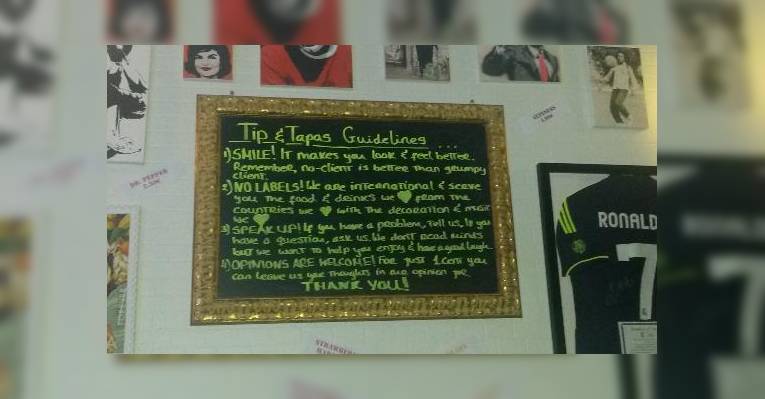 Tip & Tapas Guidelines ...
1) SMILE! It makes you look & feel better.
Remember, no-client is better than grumpy
client.
2) NO LABELS! We are international & serve
you the food & drinks we ♥ from the
countries we ♥ with the decoration & music
we ♥
3) SPEAK UP! If you have a problem, tell us, if you
have a question, ask us. We don't read minds
but we want to help you enjoy & have a good laugh.
4) OPINIONS ARE WELCOME! For just 1 cent you
can leave us your thoughts in our opinion
THANK YOU!
DR. PEPPER
2.50€
GUINNESS
RONALD
7